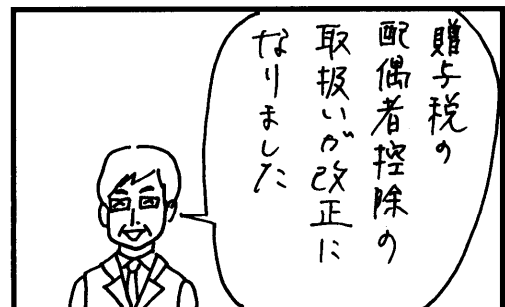 贈与税の
配偶者控除の
取扱いが改正に
なりました